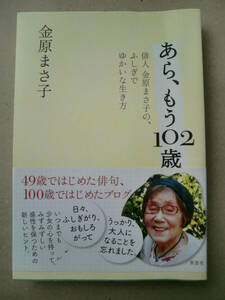 あら、もう102歳
俳人 金原まさ子の、
ふしぎで
ゆかいな生き方
金原まさ子
49歳ではじめた俳句、
100歳ではじめたブログ
日々、
ふしぎがり、
おもしろ
がって
うっかり、
大人に
なることを
忘れました
いつまでも
少女の心を持って、
みずみずしい
感性を保つための
新しいヒント
草思社